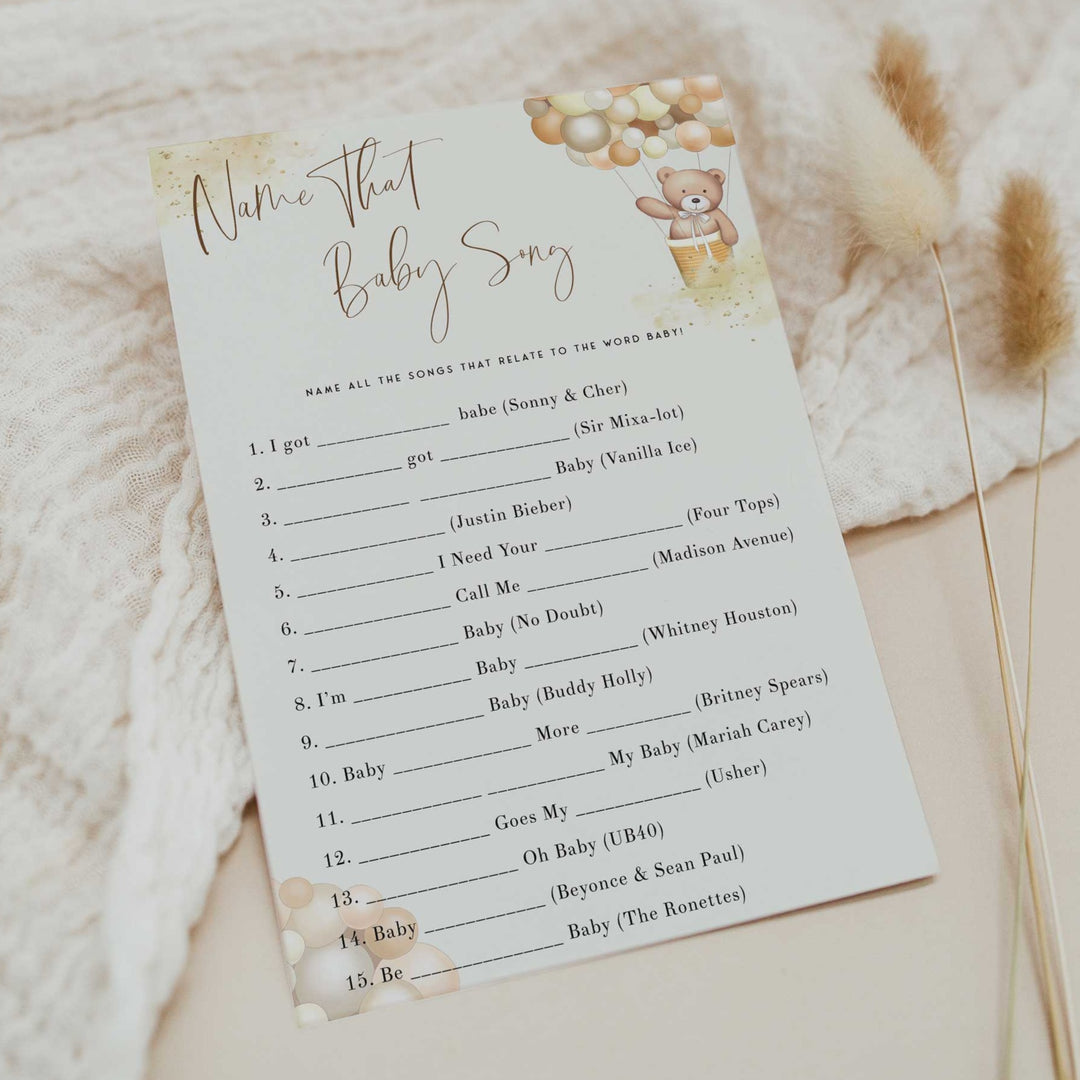 Name That
Baby Song
NAME ALL THE SONGS THAT RELATE TO THE WORD BABY!
1. I got ______________ babe (Sonny & Cher)
2. ______________ got ______________ (Sir Mixa-lot)
3. ______________ ______________ Baby (Vanilla Ice)
4. ______________ (Justin Bieber)
5. ______________ I Need Your ______________ (Four Tops)
6. ______________ Call Me ______________ (Madison Avenue)
7. ______________ Baby (No Doubt)
8. I'm ______________ Baby ______________ (Whitney Houston)
9. ______________ Baby (Buddy Holly)
10. Baby ______________ More ______________ (Britney Spears)
11. ______________ ______________ My Baby (Mariah Carey)
12. ______________ Goes My ______________ (Usher)
13. ______________ Oh Baby (UB40)
14. Baby ______________ (Beyonce & Sean Paul)
15. Be ______________ Baby (The Ronettes)